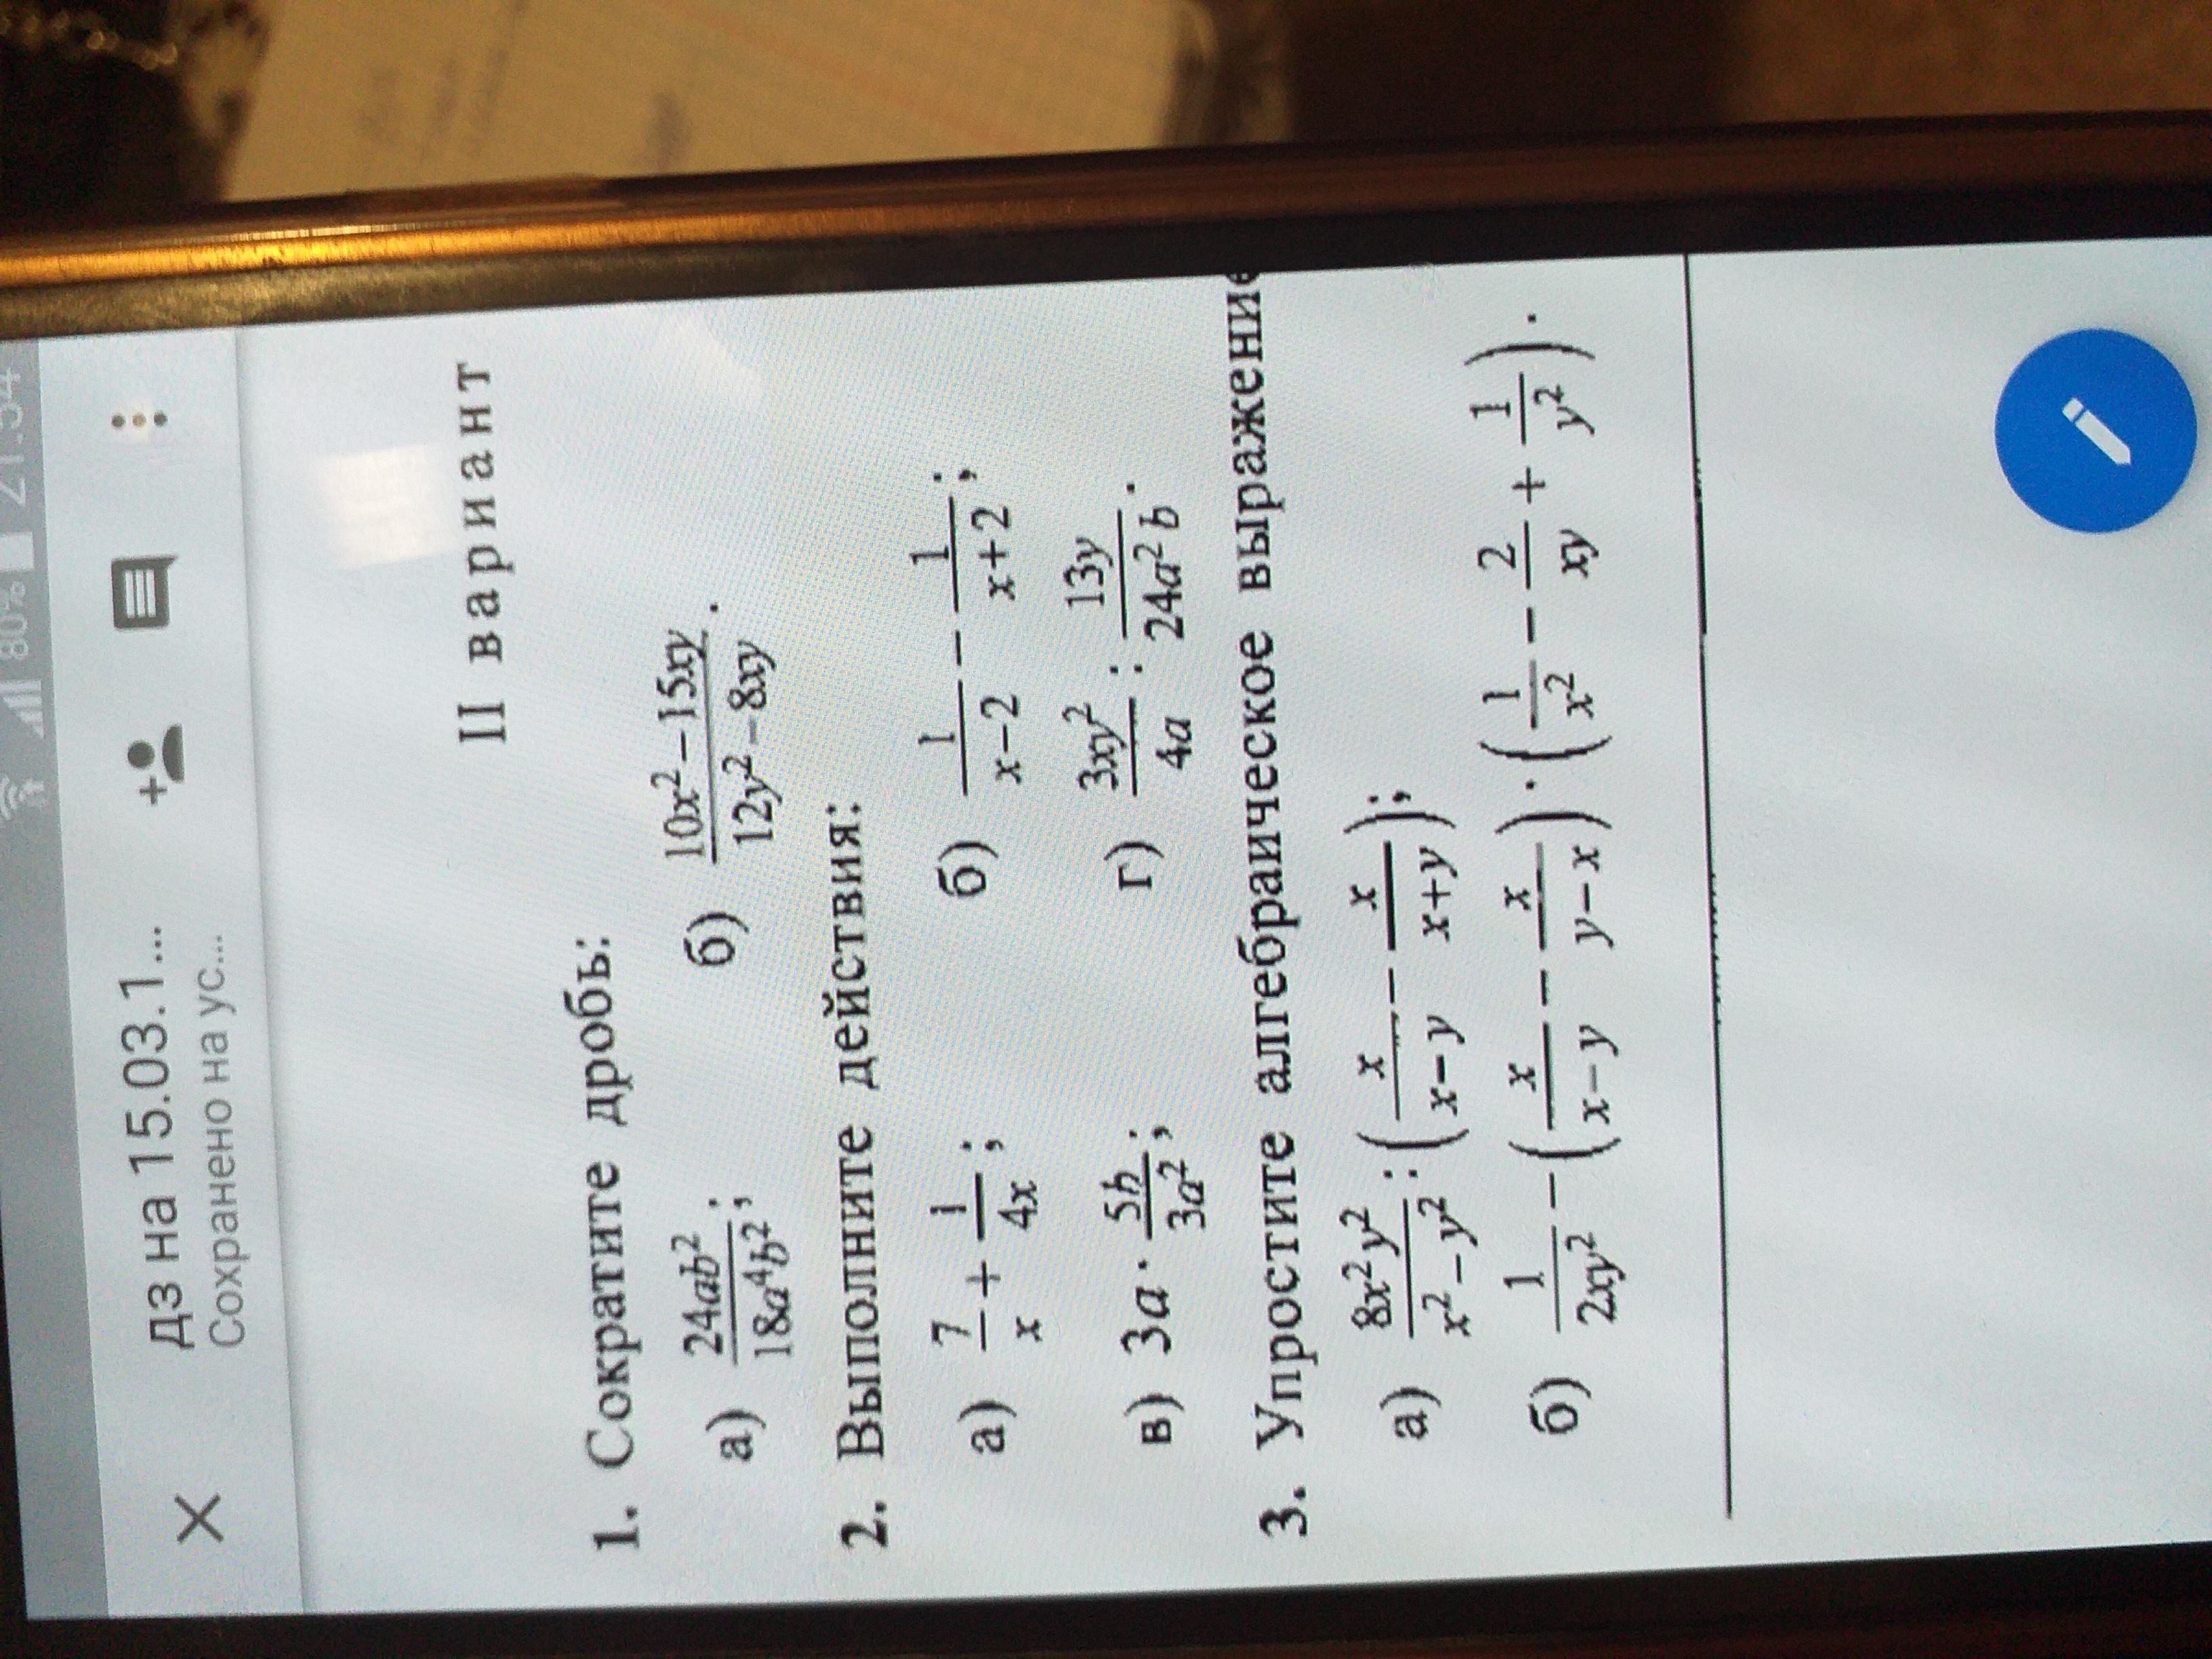 80% 21:54
дз на 15.03.1...
Сохранено на ус...
II вариант
1. Сократите дробь:
а) \frac{24ab^2}{18a^4b^2}; б) \frac{10x^2-15xy}{12y^2-8xy}.
2. Выполните действия:
а) \frac{7}{x} + \frac{1}{4x}; б) \frac{1}{x-2} - \frac{1}{x+2};
в) 3a · \frac{5b}{3a^2}; г) \frac{3xy^2}{4a} : \frac{13y}{24a^2b}.
3. Упростите алгебраическое выражение
а) \frac{8x^2y^2}{x^2-y^2} : (\frac{x}{x-y} - \frac{x}{x+y});
б) \frac{1}{2xy^2} - (\frac{x}{x-y} - \frac{x}{y-x}) · (\frac{1}{x^2} - \frac{2}{xy} + \frac{1}{y^2}).